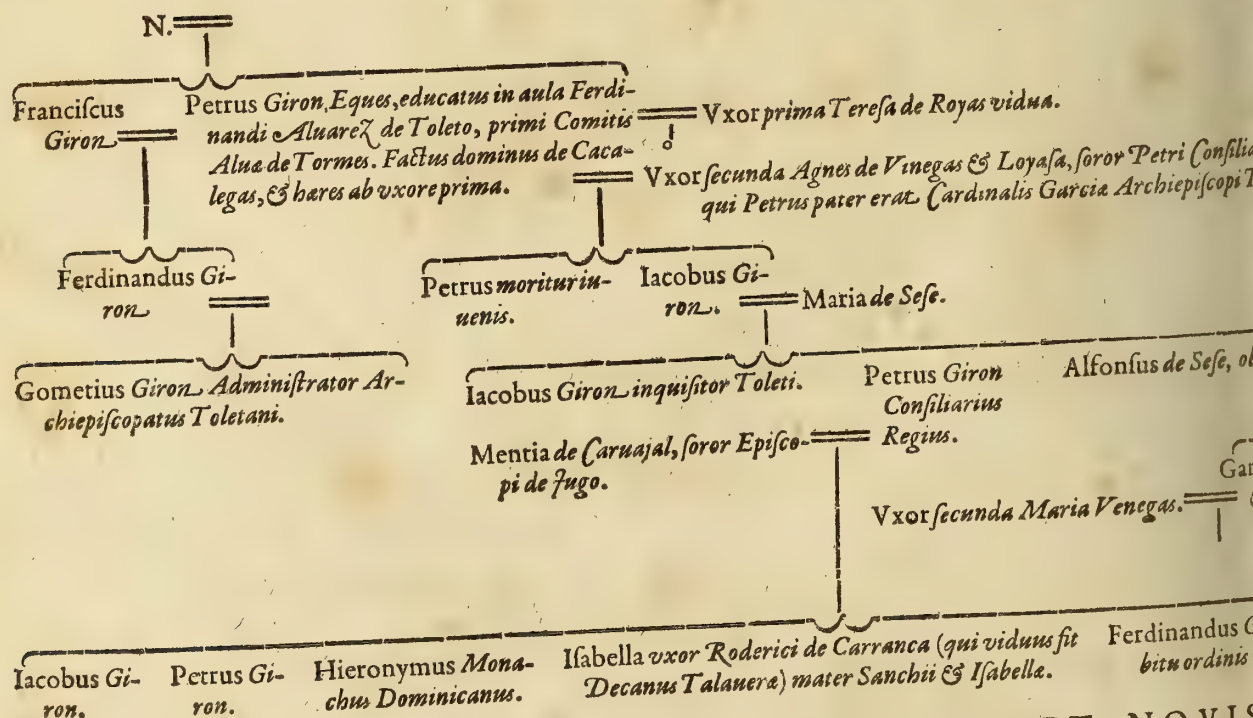 N.
Franciſcus
Giron
Petrus Giron, Eques, educatus in aula Ferdi-
nandi Aluarez de Toleto, primi Comitis
Aluæ de Tormes. Factus dominus de Caca-
legas, & hæres ab vxore prima.
Vxor prima Tereſa de Royas vidua.
Vxor ſecunda Agnes de Vinegas & Loyaſa, ſoror Petri
qui Petrus pater erat Cardinalis Garciæ Archiepiſcopi
Ferdinandus Gi-
ron
Petrus moritur iu-
uenis.
Iacobus Gi-
ron.
Maria de Seſe.
Gometius Giron Adminiſtrator Ar-
chiepiſcopatus Toletani.
Iacobus Giron inquiſitor Toleti.
Petrus Giron
Conſiliarius
Regius.
Alfonſus de Seſe,
Mentia de Caruajal, ſoror Epiſco-
pi de Jugo.
Vxor ſecunda Maria Venegas.
Iacobus Gi-
ron.
Petrus Gi-
ron.
Hieronymus Mona-
chus Dominicanus.
Iſabella vxor Roderici de Carranca (qui viduus fit
Decanus Talaueræ) mater Sanchii & Iſabellæ.
Ferdinandus
bitu ordinis